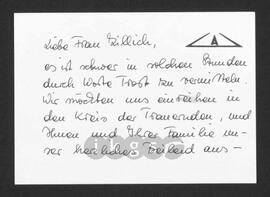 Liebe Frau Zillich,
A
es ist schwer in solchen Stunden
durch Worte Trost zu vermitteln.
Wir möchten uns einreihen in
den Kreis der Trauernden, und
Ihnen und Ihrer Familie un-
ser herzliches Beileid aus-